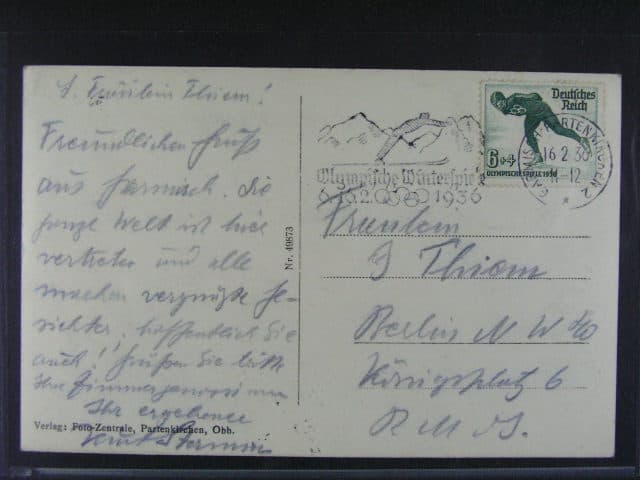 S. Fräulein Thiem!
Freundlichen Gruß
aus Garmisch. Die
ganze Welt ist hier
vertreten und alle
machen vergnügte Ge-
sichter, hoffentlich Sie
auch! Grüßen Sie bitte
Ihre Zimmergenossinnen
Ihr ergebener
Verlag: Foto-Zentrale, Partenkirchen, Obb.
Nr. 49873
Olympische Winterspiele
6.-16.2. 1936
Deutsches
Reich
6+4
OLYMPISCHE SPIELE 1936
GARMISCH-PARTENKIRCHEN 2
16.2.36
11-12
Fräulein
Thiem
Berlin N W 40
Königsplatz 6